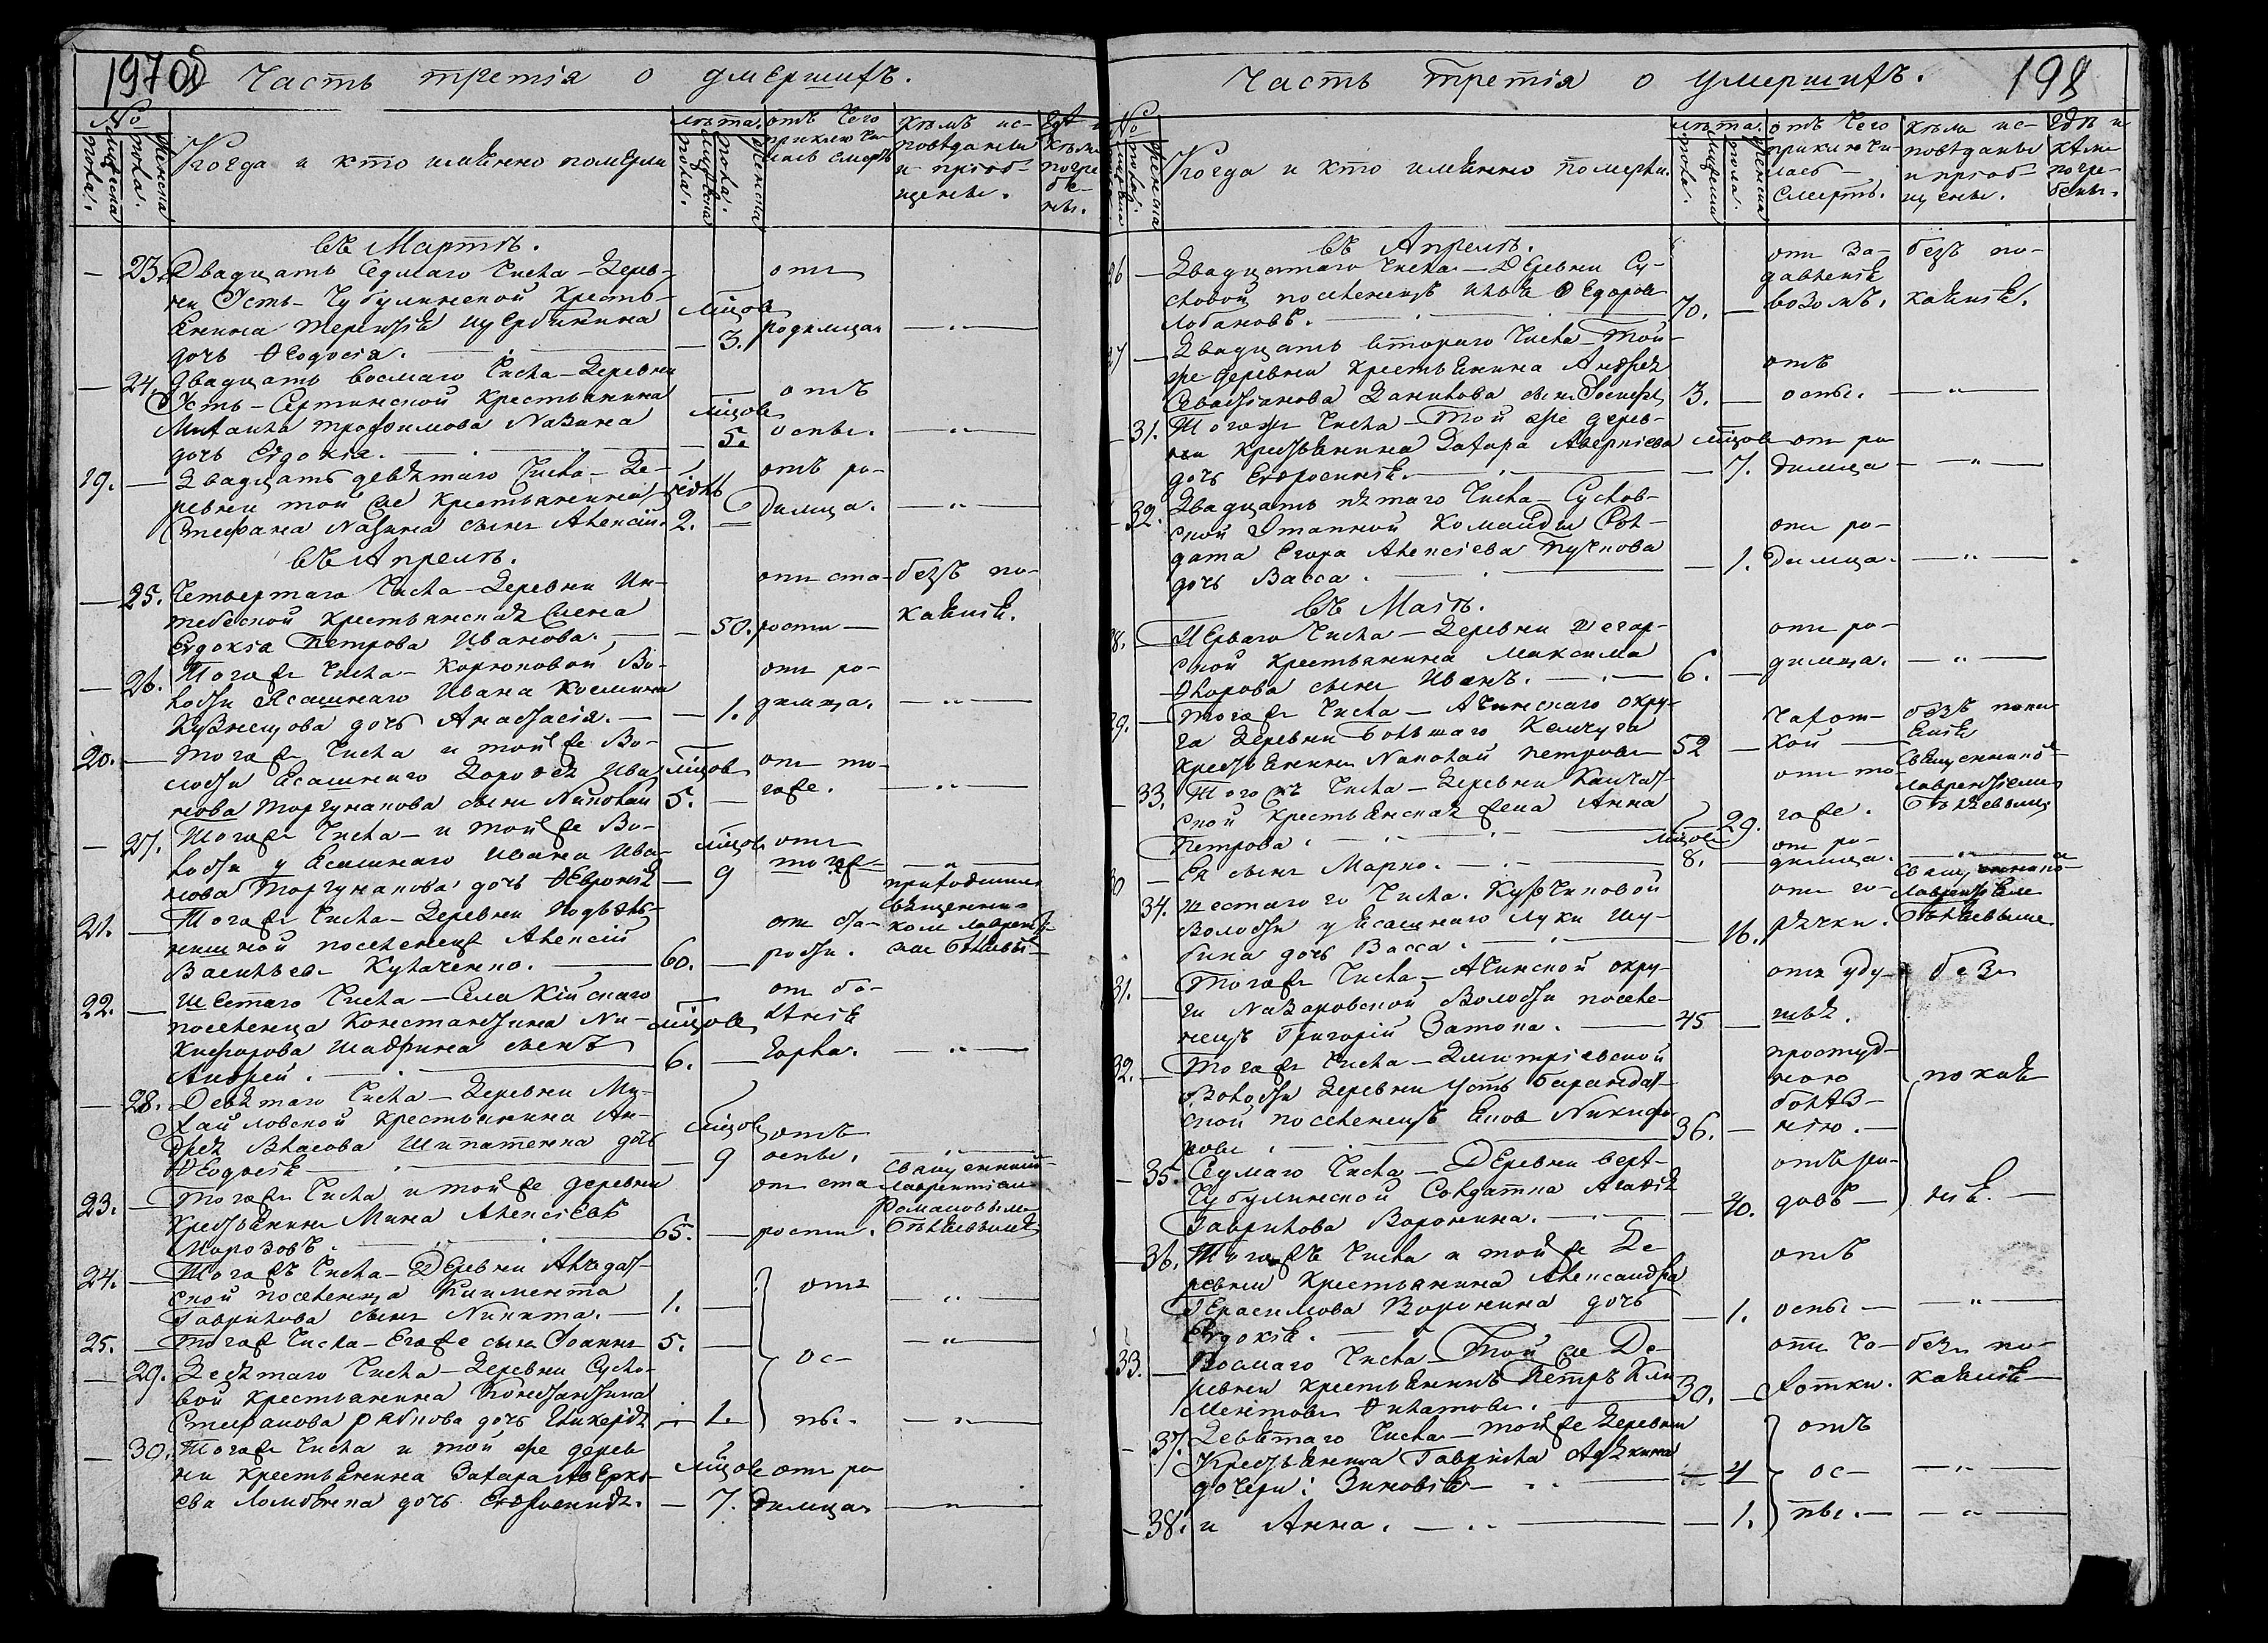 197 об
Часть третія о умершихъ.
№
мужеска пола.
женска пола.
Когда и кто именно померли
лѣта.
мужеска пола.
женска пола.
отъ чего
приключи-
лась смерть
кѣмъ ис-
повѣданы
и пріоб-
щены.
гдѣ и
кѣмъ
погре
бе-
ны.
въ Мартѣ.
— 23. Двадцать седмаго числа — Дерев-
ни Усть-Чубулинской крестья-
янина Терентія
дочь Ѳеодосія. — мѣцовъ 3. отъ родимца
— 24. Двадцать восмаго числа — Деревни
Усть-Сертинской крестьянина
Михаила Трофимова Казина
дочь Евдокія. — мѣцовъ 5. отъ оспы. — „ —
19. — Двадцать девятаго числа — Де-
ревни той же крестьянина
Стефана Казина сынъ Алексій. 2. — отъ ро-
димца. — „ —
въ Апрелѣ.
— 25. Четвертаго числа — Деревни Ин-
тебеской крестьянская жена
Евдокія Петрова Иванова. — 50. отъ ста-
рости — безъ по-
каянія.
— 26. Тогоже числа — Корюковой Во-
лости Ясашнаго Ивана Козмина
Кузнецова дочь Анастасія. — 1. отъ ро-
димца. — „ —
20. — Тогоже числа и той же Во-
лости Ясашнаго Дорофея Ива-
нова Торгунакова сынъ Николай мѣцовъ 5. — отъ то-
гоже. — „ —
— 27. Тогоже числа — и той же Во-
лости у Ясашнаго Ивана Ива-
нова Торгунакова дочь Ѳевронія — мѣцовъ 9 отъ
тогоже — „ —
21. — Тогоже числа — Деревни
поселенецъ Алексій
Васильевъ Кулаченко. — 60. — отъ ста-
рости. приходскимъ
священни-
комъ Лаврент-
іемъ Бѣляевы-
22. — Шестаго числа — Села Кійскаго
поселенца Константина Ни-
кифорова Шадрина сынъ
Андрей. — мѣцовъ 6. — отъ бо-
лѣнія
горла. — „ —
— 28. Девятаго числа — Деревни Ми-
хайловской крестьянина Ан-
дрея Власова Шипатенка дочь
Ѳеодосія — мѣцовъ 9 отъ
оспы. — „ —
23. — Тогоже числа и той же деревни
крестьянинъ Мина Алексіевъ
Морозовъ. — 65. — отъ ста
рости. священникомъ
Лаврентіемъ
Романовымъ
Бѣляевымъ
24. — Тогожъ числа — Деревни Алчедат-
ской поселенца Климента
Гаврилова сынъ Никита. — 1. — отъ — „ —
25. — Тогоже числа — Егоже сынъ Іоаннъ 5. — ос- — „ —
— 29. Десятаго числа — Деревни Сусло-
вой крестьянина Константина
Стефанова Рябкова дочь Гликерія — 1. пы. — „ —
— 30. Тогоже числа и той же дерев
ни крестьянина Захара Аверкі-
ева дочь Евфросинія. — мѣцовъ 7. отъ ро
димца — „ —
198
Часть третія о умершихъ.
№
женска
пола
Когда и кто именно померли.
лѣта.
мужеска
пола.
женска
пола.
отъ чего
приключи-
лась —
смерть.
кѣмъ ис-
повѣданы
и пріоб-
щены.
гдѣ и
кѣмъ
погре-
бены.
въ Апрелѣ.
26 — Двадцатаго числа — Деревни Су-
словой поселенецъ Илья Ѳедоровъ
Лобановъ. — 70. — отъ за-
давленія
возомъ. безъ по-
каянія.
27 — Двадцать втораго числа — Той-
же деревни крестьянина Андрея
Севастіанова Данилова сынъ Іосифъ 3. — отъ
оспы. — „ —
— 31. Тогожъ числа — Той же дерев-
ни крестьянина Захара Аверкіева
дочь Евфросинія. — мѣцовъ 7. отъ ро
димца — „ —
— 32. Двадцать пятаго числа — Суслов-
ской Этапной Команды Сол-
дата Егора Алексіева Пучкова
дочь Васса. — 1. отъ ро-
димца. — „ —
въ Маіѣ.
28. — Перваго числа — Деревни
ской крестьянина Максима
сынъ Иванъ. — 6. — отъ ро-
димца. — „ —
29. — Тогоже числа — Ачинскаго окру-
га Деревни Большаго Кемчуга
крестьянинъ Николай Петровъ 52 — чахот-
кой — безъ пока
янія
— 33. Тогожъ числа — Деревни
ской крестьянская жена Анна
Петрова. — 29. отъ то
гоже. священникомъ
Лаврентіемъ
Бѣляевымъ
30 — Ея сынъ Марко. — мѣцовъ 8. — отъ ро-
димца. — „ —
— 34. Шестаго го числа. Курчиковой
Волости у Ясашнаго Луки Шу-
бина дочь Васса. — 16. отъ го-
рячки. священнико
Лаврентіемъ
Бѣляевымъ
31. — Тогоже числа — Ачинской окру-
ги Назаровской Волости поселе-
нецъ Григорій Затопа. — 45 — отъ уду-
шья. безъ
32. — Тогоже числа — Дмитріевской
Волости Деревни Усть Барандат-
ской поселенецъ Никифо-
ровъ. — 36. — простуд-
ною
болѣз-
нію. — покая
— 35. Седмаго числа — Деревни Верх-
Чубулинской Солдатка Агафія
Гаврилова Воронина. — 40. отъ ро-
довъ — нія. —
— 36. Тогожъ числа и той же Де-
ревни крестьянина Александра
Герасимова Воронина дочь
Евдокія. — 1. отъ
оспы — „ —
33. — Восмаго числа — Той же Де-
ревни крестьянинъ Петръ Кли
ментовъ Филатовъ. — 30. — отъ ча-
хотки. безъ по-
каянія —
— 37. Девятаго числа — той же Деревни
крестьянина Гаврила
дочери: Зиновія — 4 отъ
ос- — „ —
— 38. и Анна. — 1. пы. — — „ —